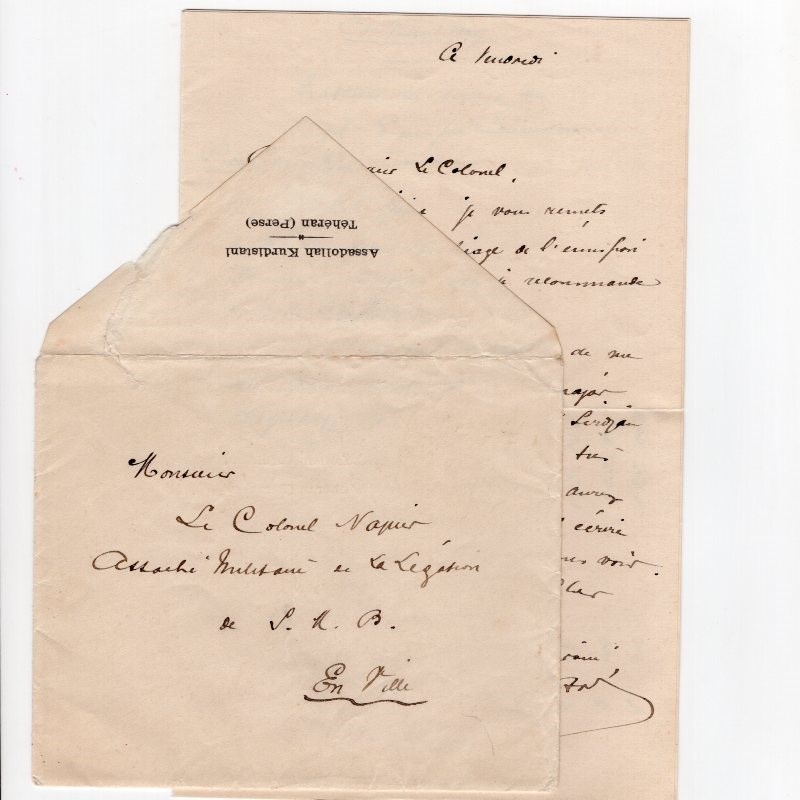 Ce Vendredi
Le Colonel,
je vous remets
de l'emission
recommande
de me
major
très
aurez
écrire
voir.
Assadollah Kurdistani
Téhéran (Perse)
Monsieur
Le Colonel Napier
Attaché Militaire de La Légation
de S. M. B.
En Ville